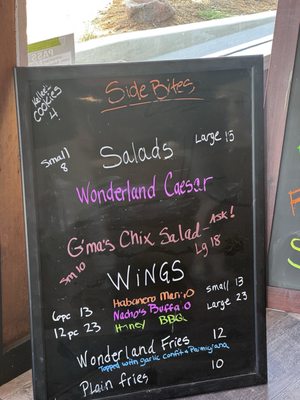 Side Bites
cookies
4
Small
8
Salads
Large 15
Wonderland Caesar
G'mas Chix Salad - Ask!
Sm 10
Lg 18
WiNGS
6pc 13
Habanero Mango
small 13
12pc 23
Nacho's Buffalo
Large 23
Honey BBQ
Wonderland Fries 12
Topped with garlic confit & Parmigiana
Plain fries 10